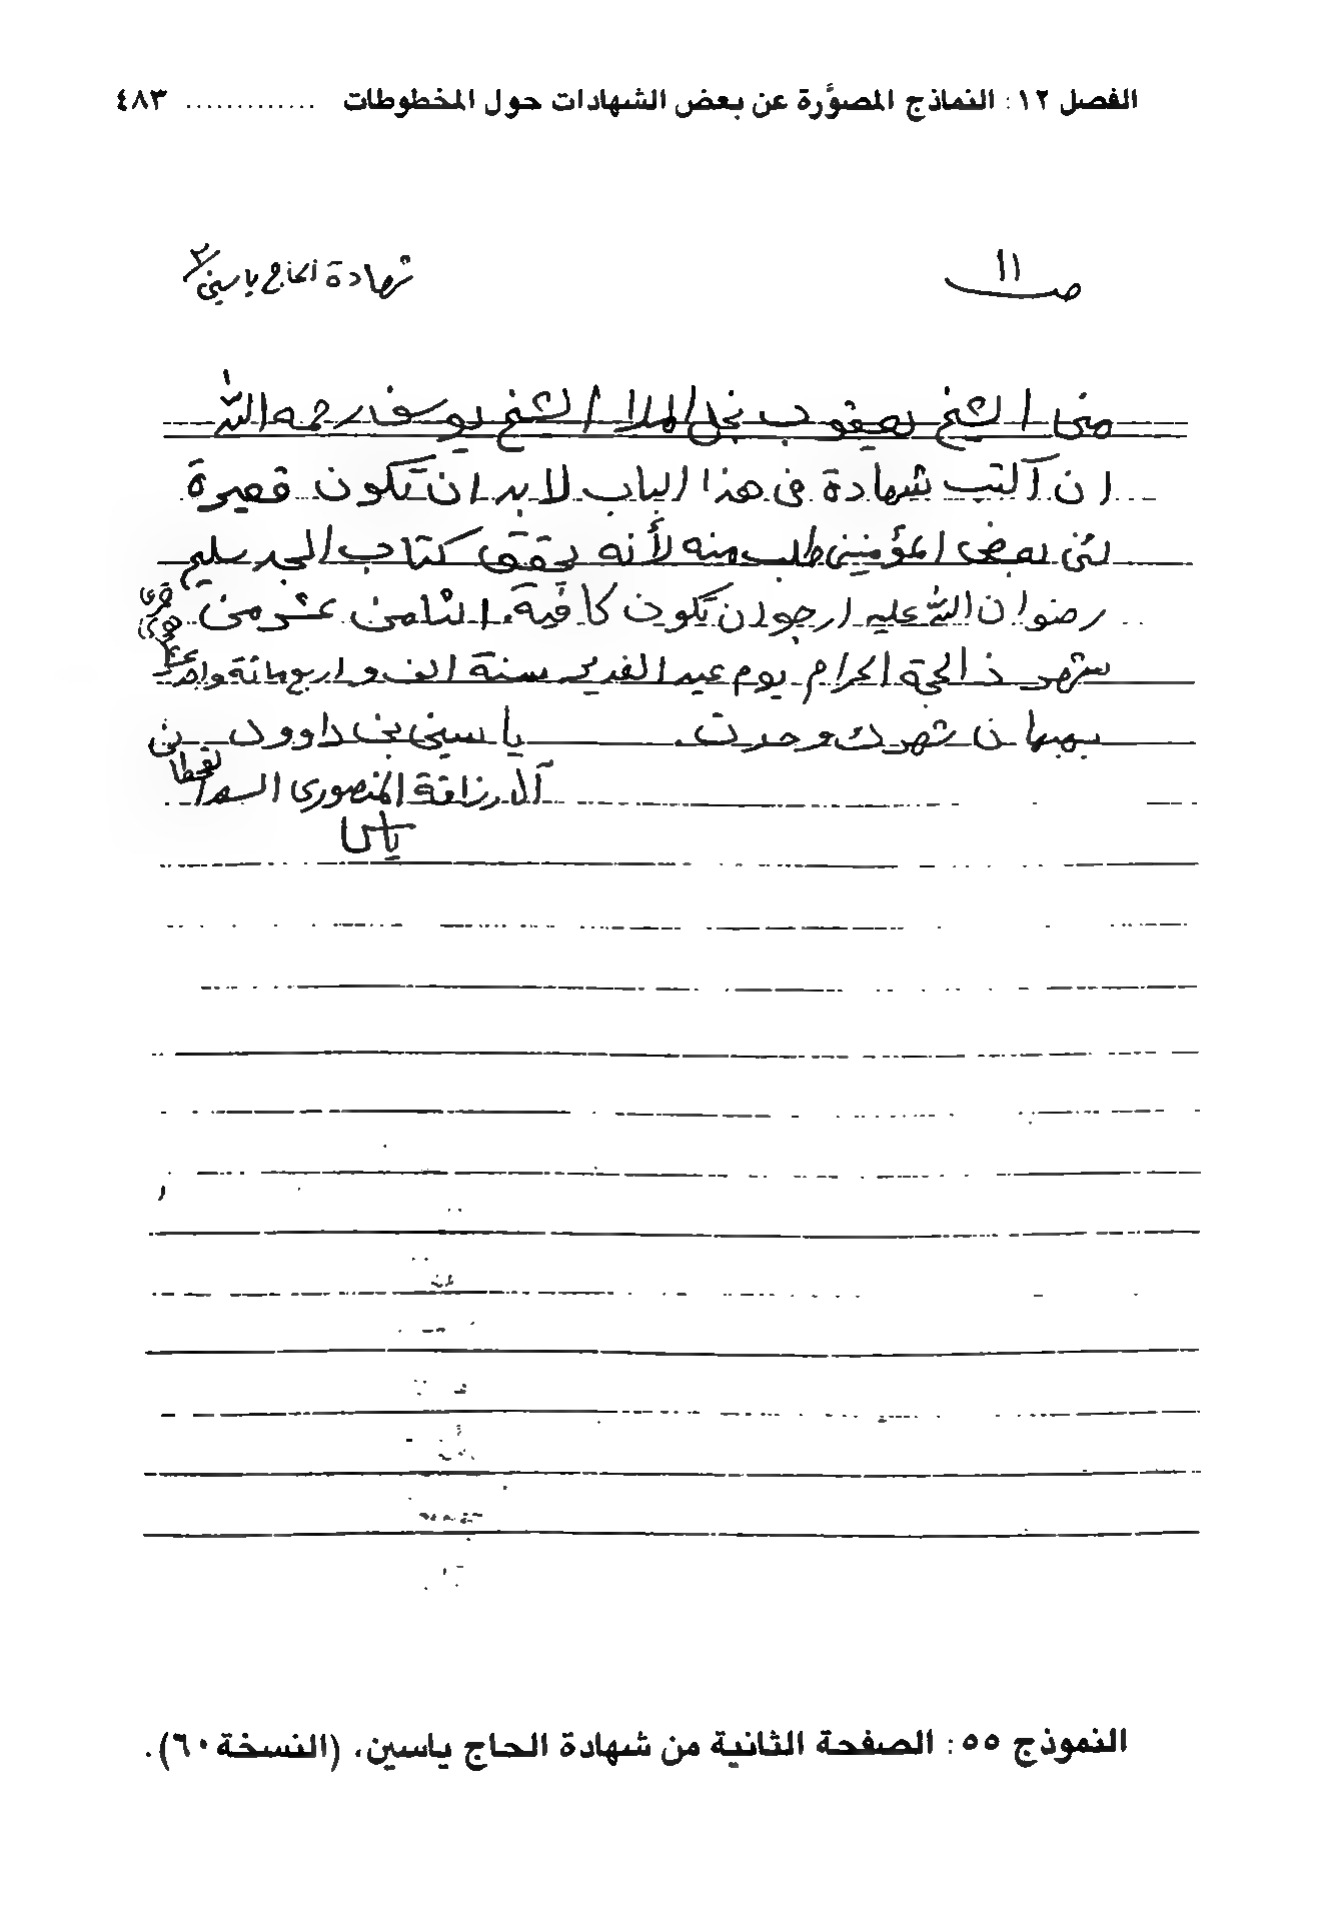 الفصل ١٢: النماذج المصوَّرة عن بعض الشهادات حول المخطوطات ............. ٤٨٣
ص ١١
شهادة الحاج ياسين/٢
منى الشيخ يعقوب نجل الملا الشيخ يوسف رحمه الله
ان آكتب شهادة في هذا الباب لابد ان تكون قصيرة
لئن بعض المؤمنين طلب منه لأنه يحقق كتاب الجد سليم
رضوان الله عليه ارجوا ان تكون كافية. الثامن عشر من
شهر ذالحجة الحرام يوم عيد الغدير سنة الف و اربع مائة
بهبهان شهرك وحدت. ياسين بن داوود بن
آل رزاقة المنصوري
النموذج ٥٥: الصفحة الثانية من شهادة الحاج ياسين، (النسخة ٦٠).